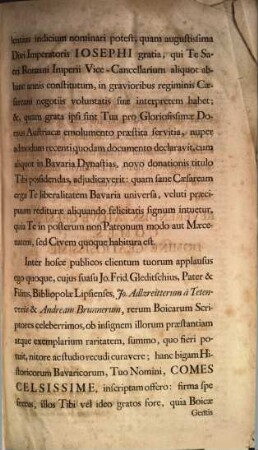 lentius indicium nominari potest, quam augustissima
Divi Imperatoris IOSEPHI gratia, qui Te Sa-
cri Romani Imperii Vice-Cancellarium aliquot ab-
hinc annis constitutum, in gravioribus regiminis Cæ-
sarei negotiis voluntatis suæ interpretem habet;
&, quam grata ipsi sint Tua pro Gloriosissimæ Do-
mus Austriacæ emolumento præstita servitia, nuper
admodum recenti quodam documento declaravit, cum
aliquot in Bavaria Dynastias, novo donationis titulo
Tibi possidendas, adjudicaverit: quam sane Cæsaream
erga Te liberalitatem Bavaria universa, veluti præci-
puum redituræ aliquando felicitatis signum intuetur,
quia Te in posterum non Patronum modo aut Mæce-
natem, sed Civem quoque habitura est.
Inter hosce publicos clientum tuorum applausus
ego quoque, cujus suasu Jo. Frid. Gleditschius, Pater &
Filius, Bibliopolæ Lipsienses, Jo. Adlzreitterum à Teten-
weis & Andream Brunnerum, rerum Boicarum Scri-
ptores celeberrimos, ob insignem illorum præstantiam
atque exemplarium raritatem, summo, quo fieri po-
tuit, nitore ac studio recudi curavere; hanc bigam Hi-
storicorum Bavaricorum, Tuo Nomini, COMES
CELSISSIME, inscriptam offero: firma spe
fretus, illos Tibi vel ideo gratos fore, quia Boicæ
Gentis